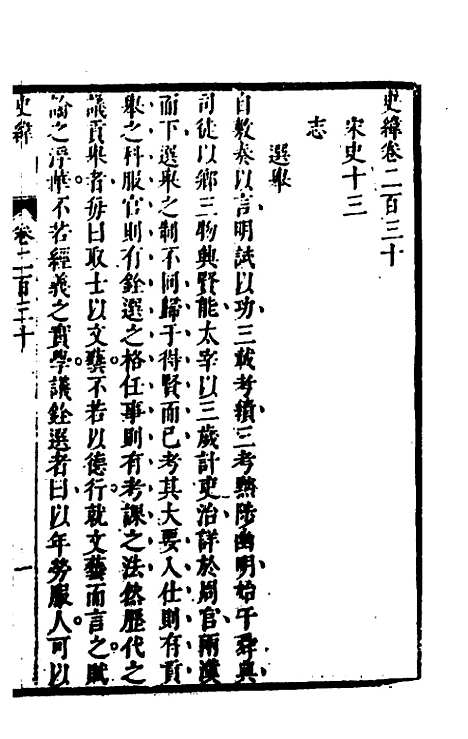 史緯卷二百三十
宋史十三
志
選舉
自敷奏以言明試以功三載考績三考黜陟幽明始于舜典
司徒以鄉三物興賢能太宰以三歲計吏治詳於周官兩漢
而下選舉之制不同歸于得賢而已考其大要入仕則有貢
舉之科服官則有銓選之格任事則有考課之法然歷代之
議貢舉者每曰取士以文藝不若以德行就文藝而言之賦
論之浮華不若經義之實學議銓選者曰以年勞服人可以
史緯
卷二百三十
一